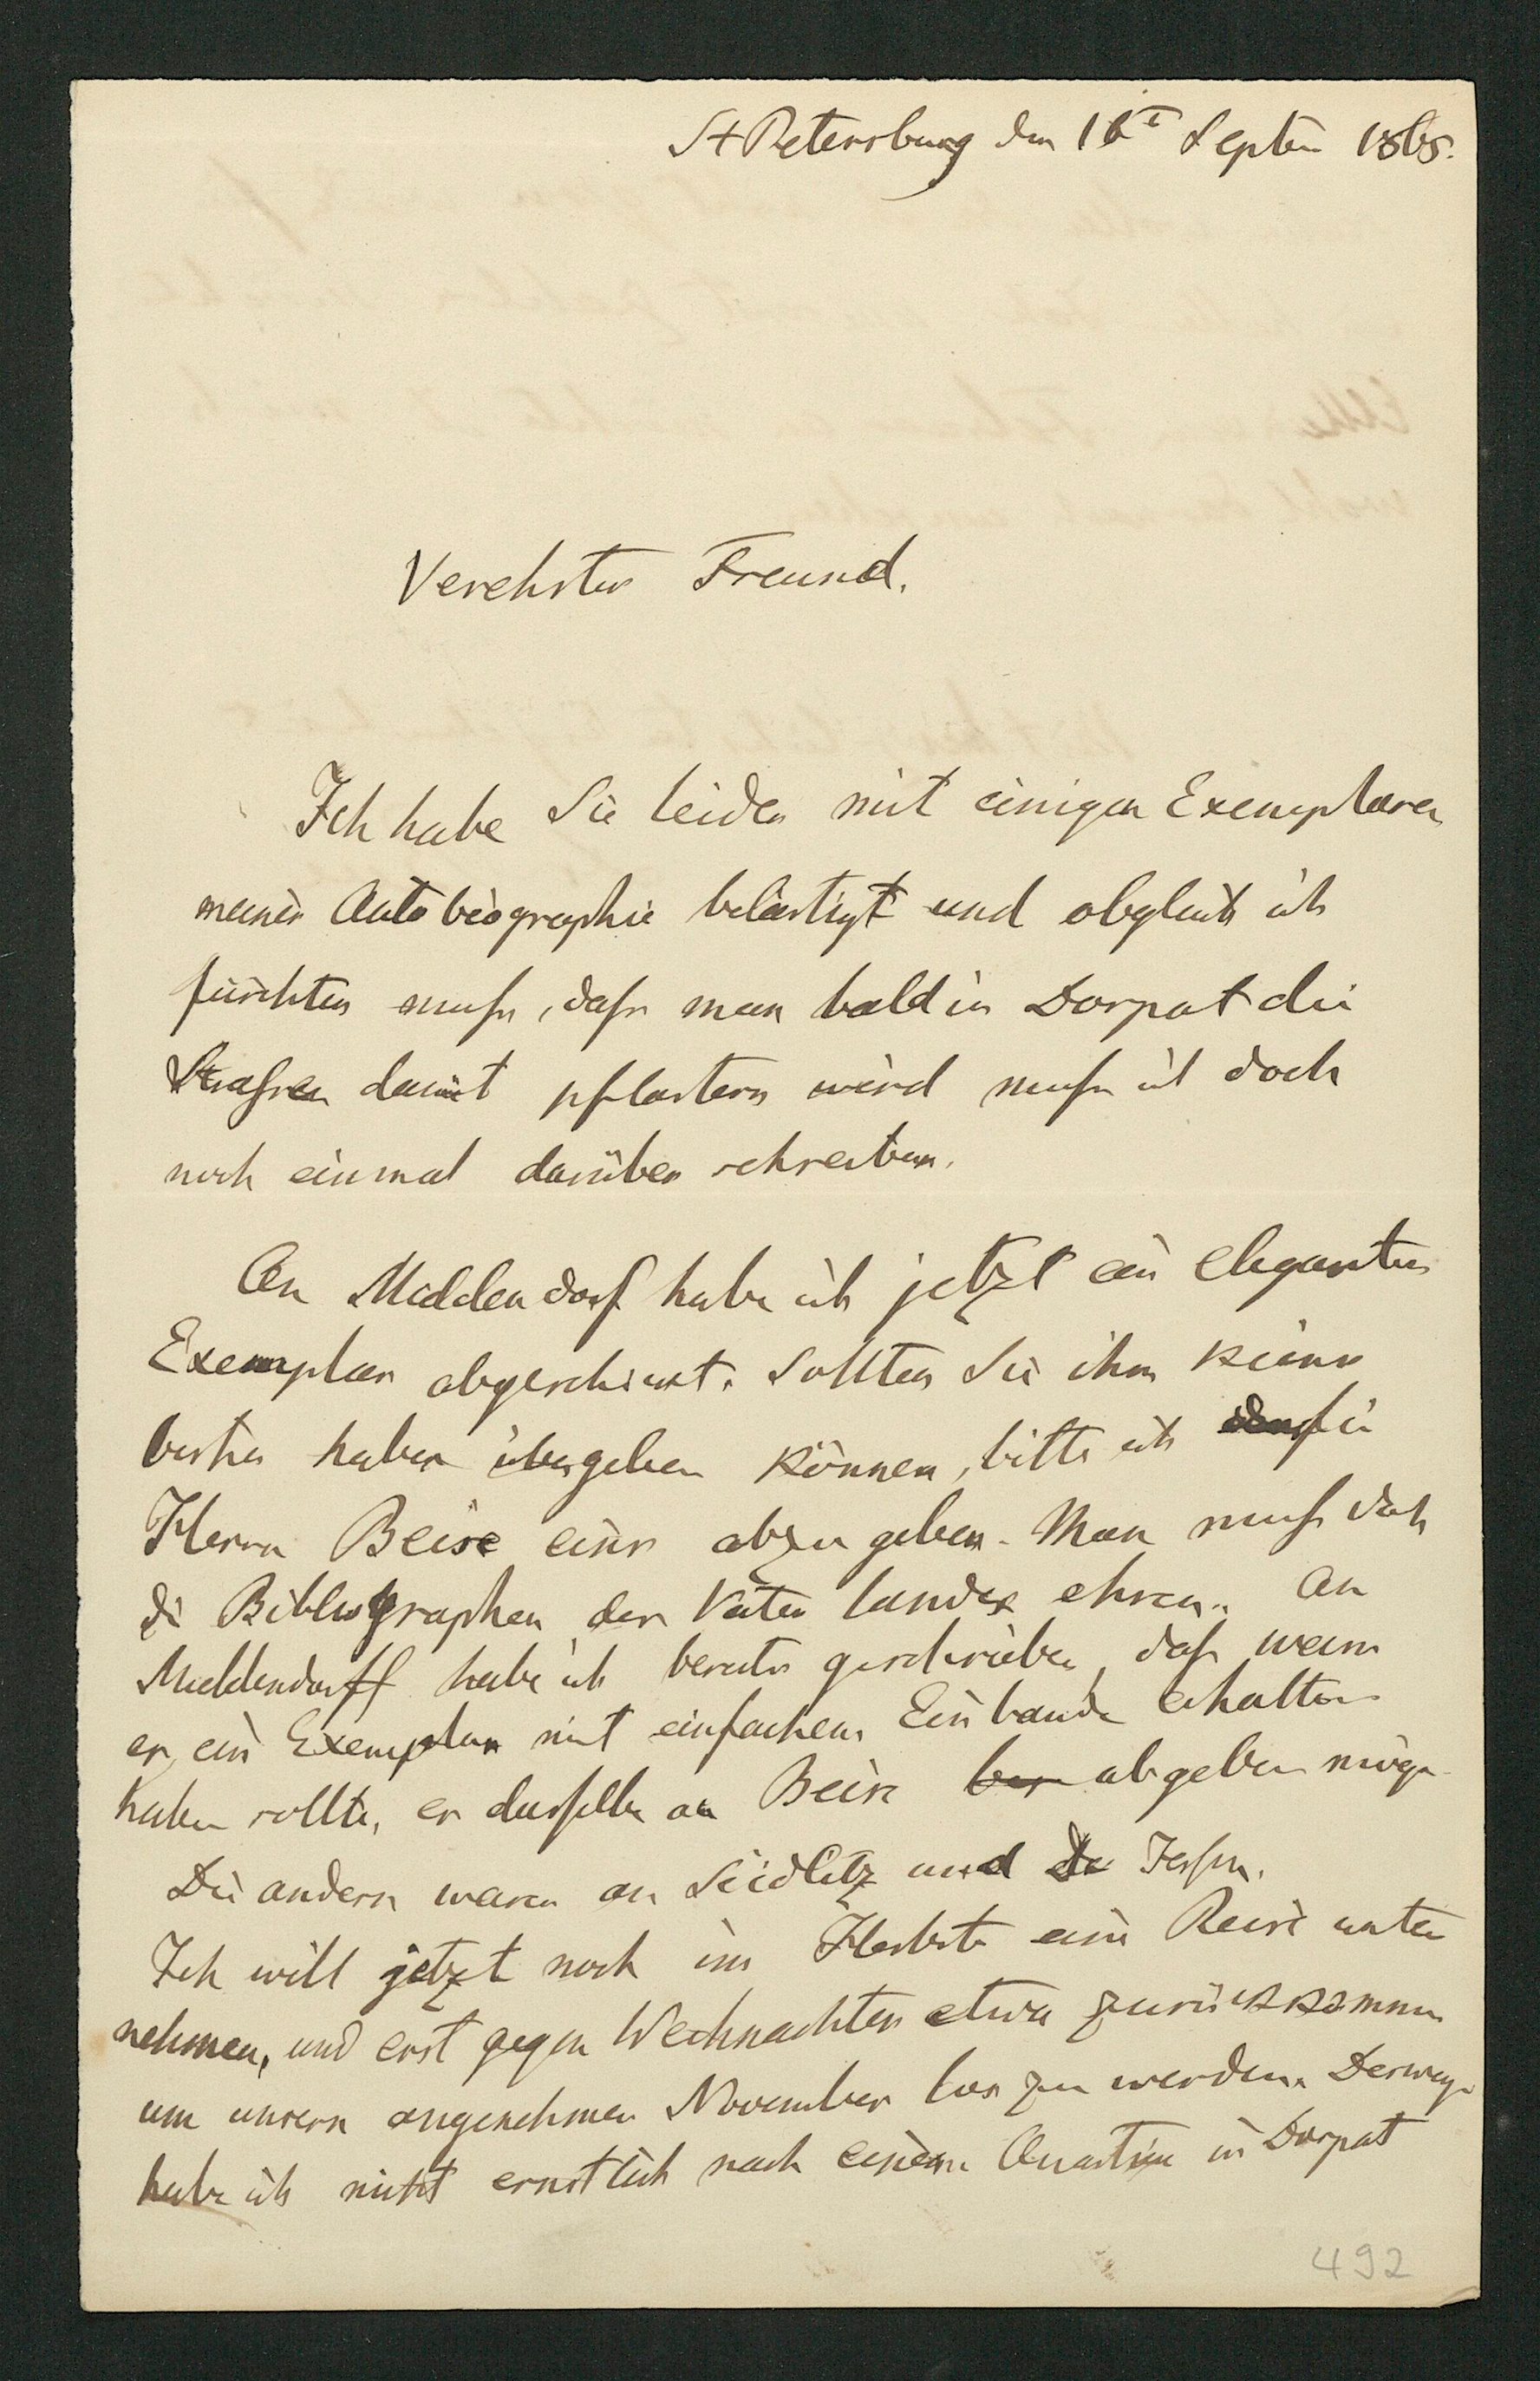 St Petersburg den 16t Septbr 1865.
Verehrter Freund.
Ich habe Sie leider mit einigen Exemplaren
meiner Autobiographie belästigt und obgleich ich
fürchten muss, dass man bald in Dorpat die
Strassen damit pflastern wird muss ich doch
noch einmal darüber schreiben.
An Middendorf habe ich jetzt ein elegantes
Exemplar abgeschickt. Sollten Sie ihm keins
haben übergeben können, bitte ich
Herrn Beise eins abzugeben. Man muss doch
die Bibliographen des Vaterlandes ehren. An
Middendorff habe ich bereits geschrieben, dass wenn
er ein Exemplar mit einfachem Einbande erhalten
haben sollte, er dasselbe an Beise abgeben möge.
Die andern waren an Seidlitz und Jessen.
Ich will jetzt noch im Herbste eine Reise unter
nehmen, und erst gegen Weihnachten etwa zurückkommen
um unsern angenehmen November los zu werden. Deswegen
habe ich nicht ernstlich nach einem Quartier in Dorpat
492